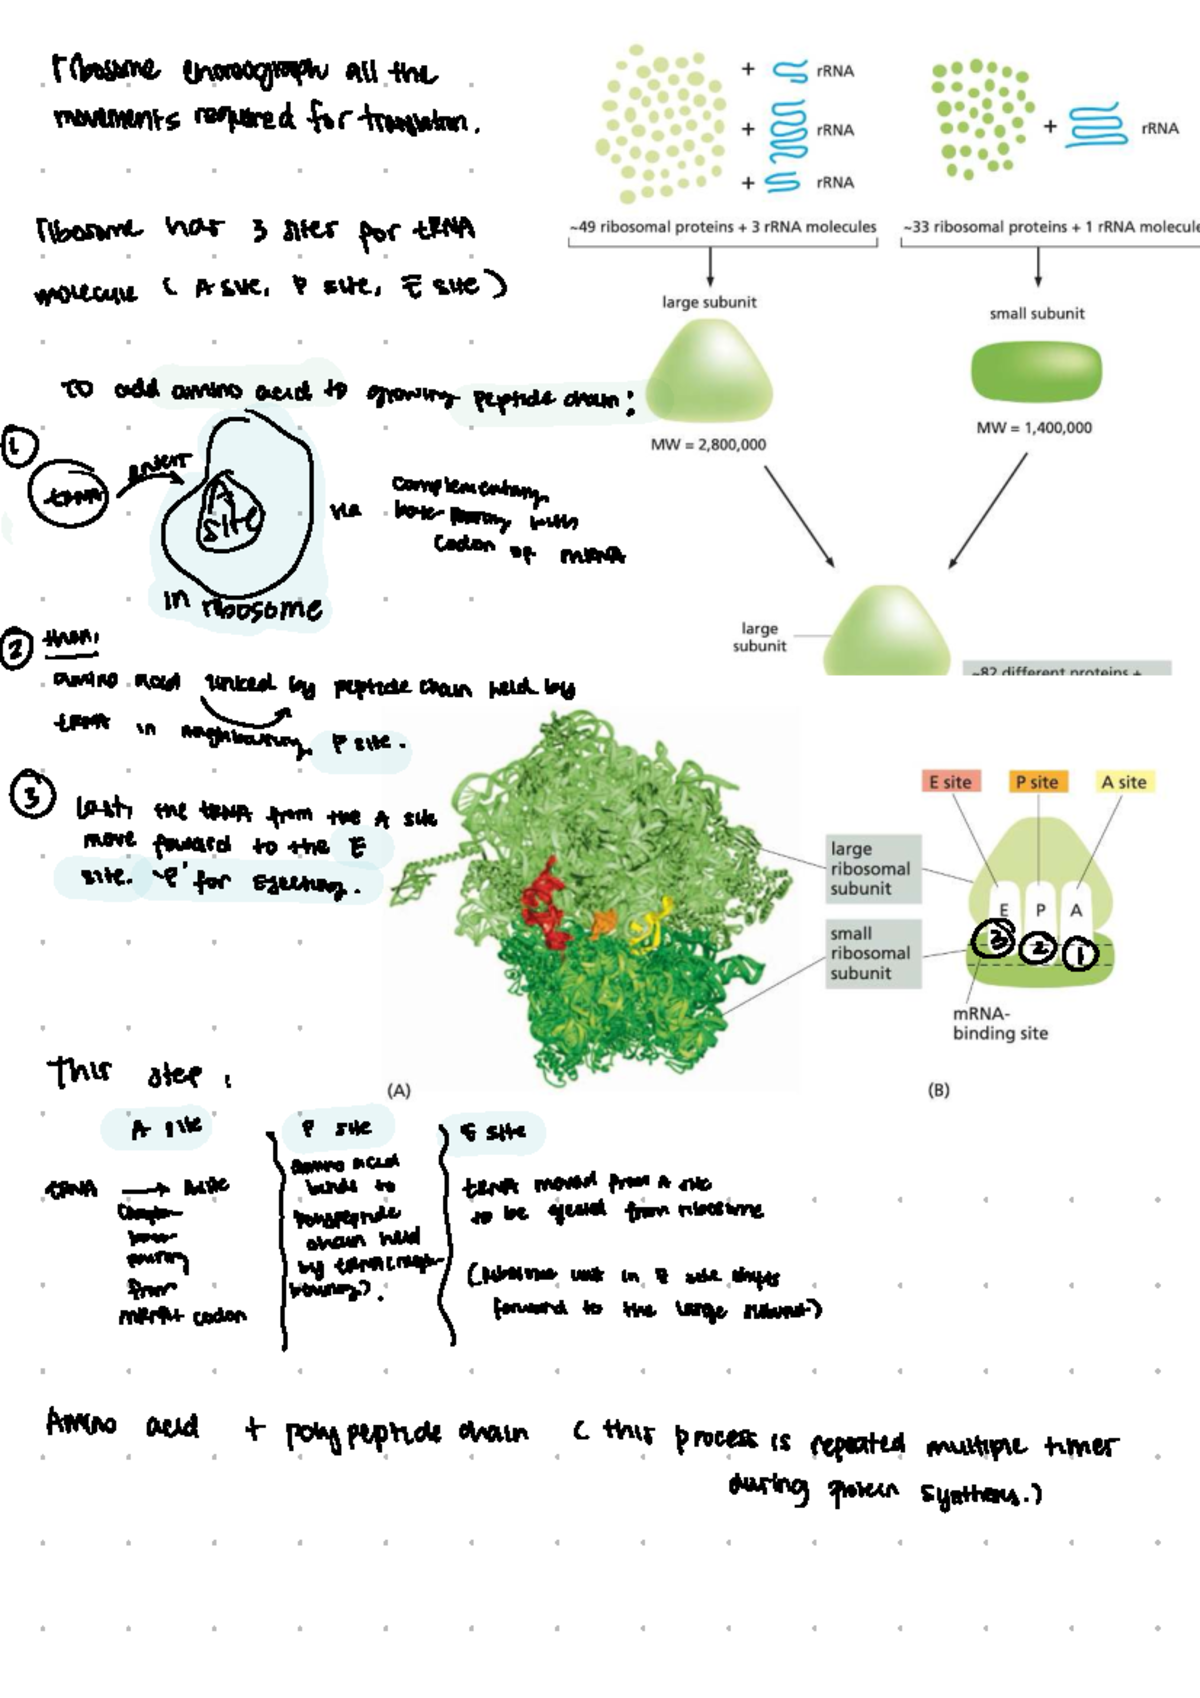 ribosome choreograph all the
movements required for translation.
ribosome has 3 sites for tRNA
molecule ( A site, P site, E site )
+ rRNA
+ rRNA
+ rRNA
~49 ribosomal proteins + 3 rRNA molecules
large subunit
MW = 2,800,000
+ rRNA
~33 ribosomal proteins + 1 rRNA molecule
small subunit
MW = 1,400,000
large
subunit
~82 different proteins +
To add amino acid to growing peptide chain :
1
tRNA
enter
A
site
in ribosome
via
complementary
base pairing with
codon of mRNA
2 then,
amino acid linked by peptide chain held by
tRNA in neighbouring P site.
3
Lastly the tRNA from the A site
move foward to the E
site. "E" for Ejecting.
(A)
E site
P site
A site
large
ribosomal
subunit
small
ribosomal
subunit
E P A
3 2 1
mRNA-
binding site
(B)
This step :
A site
tRNA → A site
base
pairing
from
codon
P site
amino acid
binds to
polypeptide
chain held
by tRNA
E site
tRNA moved from A site
to be ejected from ribosome
(ribosome unit in E site shifts
forward to the large subunit)
Amino acid + polypeptide chain ( this process is repeated multiple times
during protein synthesis.)